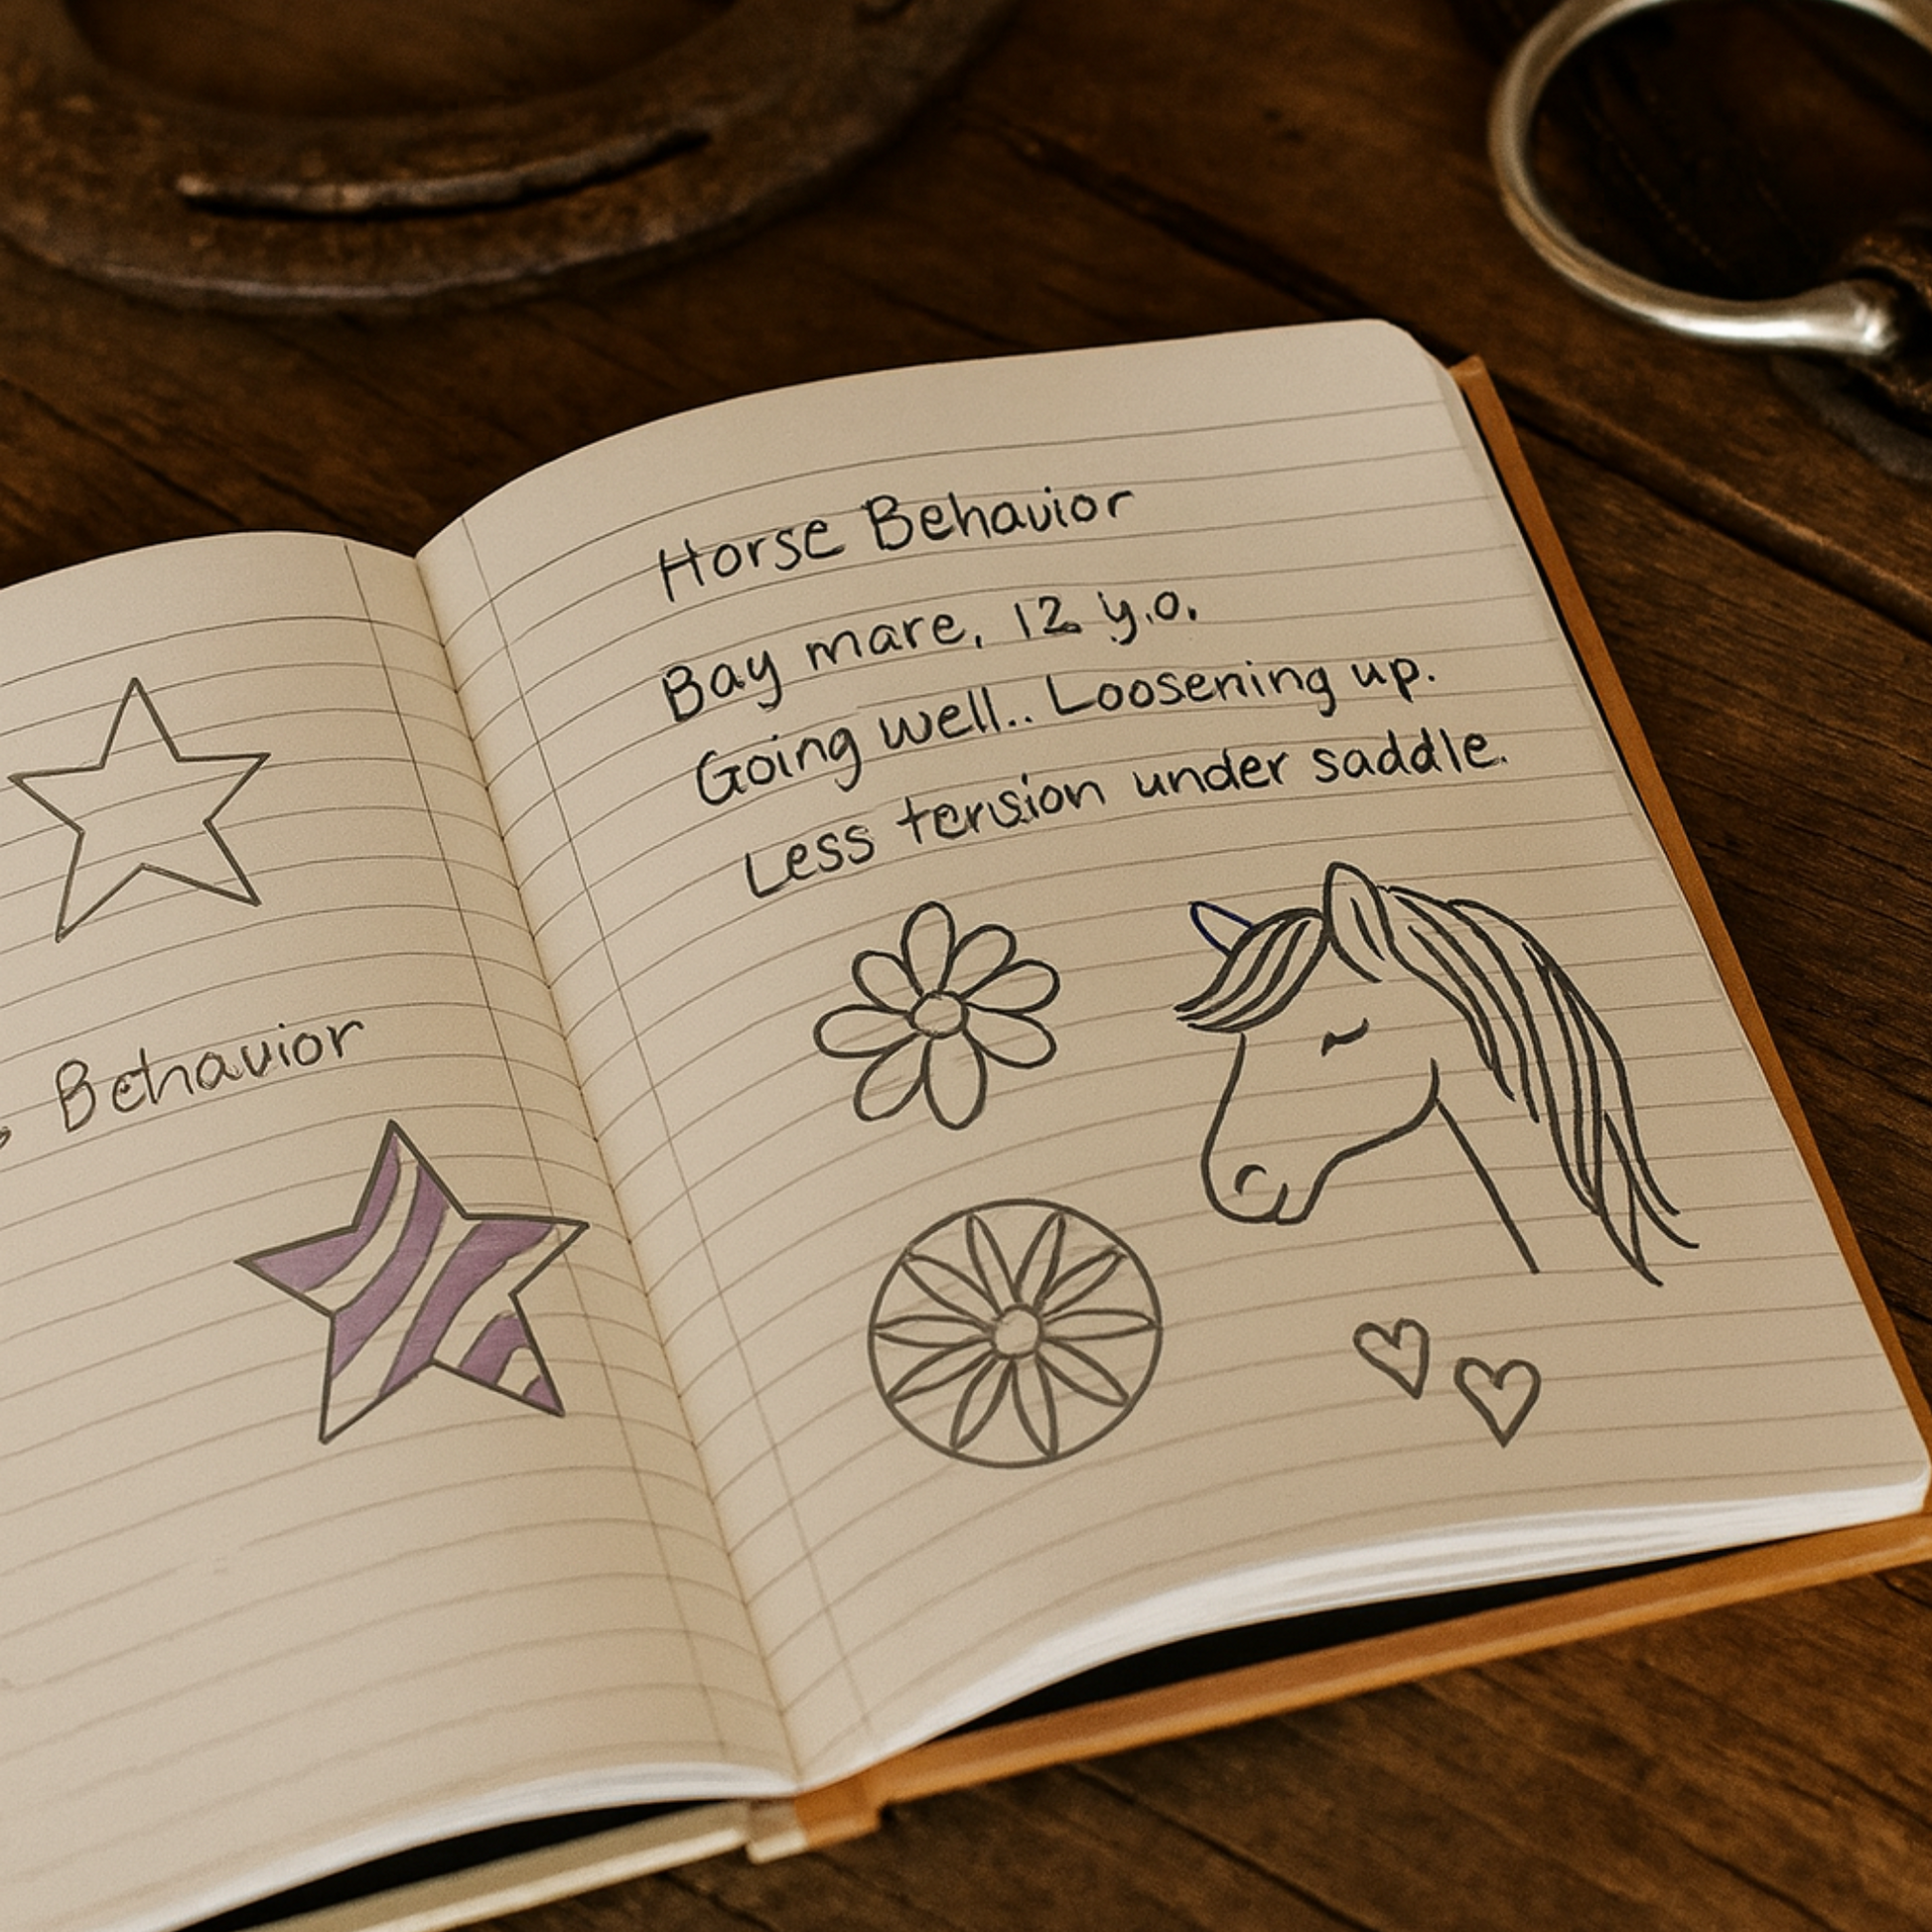 Behavior
Horse Behavior
Bay mare, 12 y.o.
Going well.. Loosening up.
Less tension under saddle.